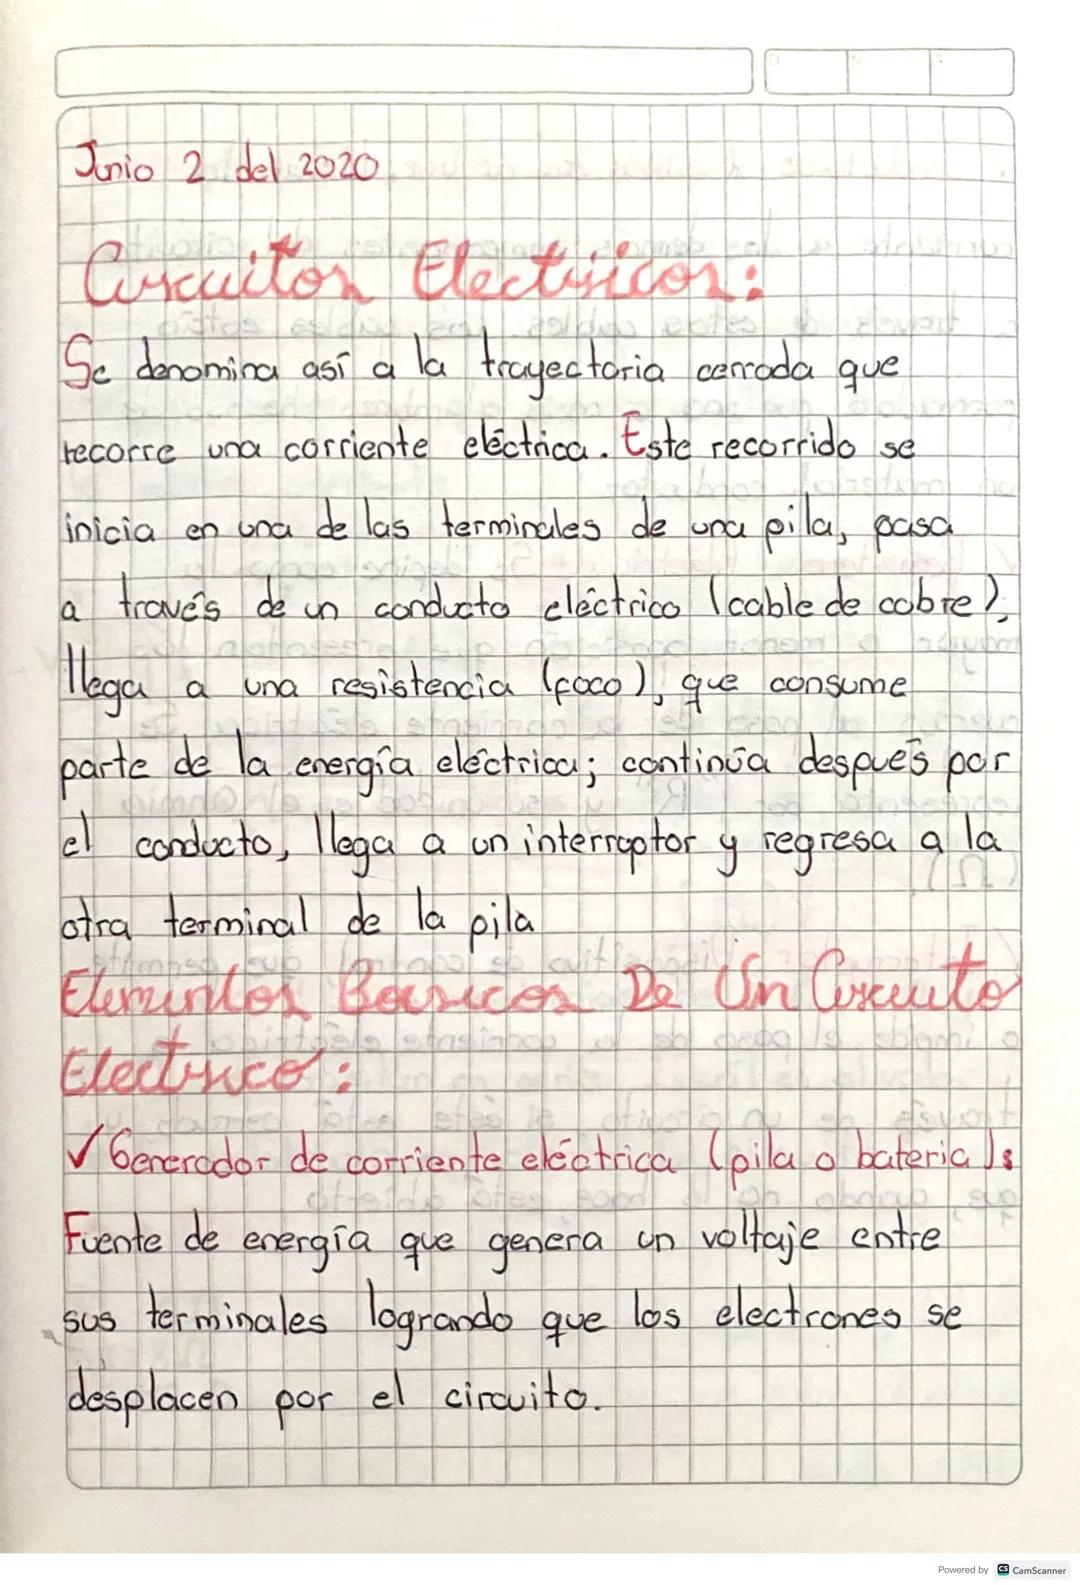 Junio 2 del 2020
Circuitos Electricos:
Se denomina así a la trayectoria cerrada que
recorre una corriente eléctrica. Este recorrido se
inicia en una de las terminales de una pila, pasa
a través de un conducto eléctrico (cable de cobre),
llega a una resistencia (foco), que consume
parte de la energía eléctrica; continúa después por
el conducto, llega a un interruptor y regresa a la
otra terminal de la pila
Elementos Basicos De Un Circuito
Electrico:
✓ Generador de corriente eléctrica (pila o bateria):
Fuente de energía que genera un voltaje entre
sus terminales logrando que los electrones se
desplacen por el circuito.
Powered by CS CamScanner